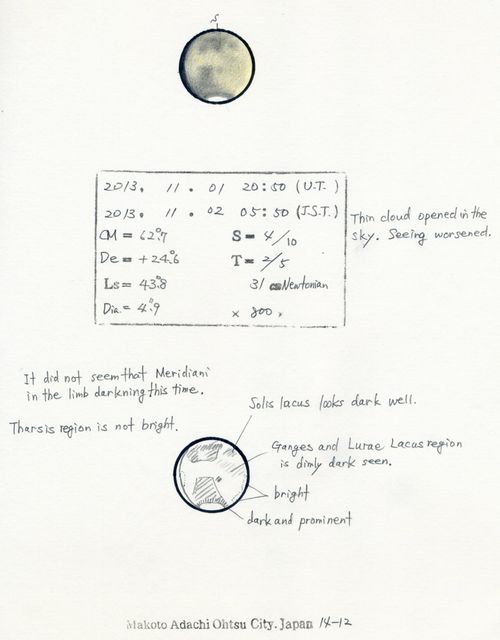 S
2013. 11. 01 20:50 (U.T.)
2013. 11. 02 05:50 (J.S.T.)
CM = 62°.7 S = 4/10
De = +24°.6 T = 2/5
Ls = 43°.8 31 cm Newtonian
Dia. = 4".9 × 800,
Thin cloud opened in the
sky. Seeing worsened.
It did not seem that Meridiani
in the limb darkning this time.
Tharsis region is not bright.
Solis lacus looks dark well.
Ganges and Lunae Lacus region
is dimly dark seen.
bright
dark and prominent
Makoto Adachi Ohtsu City. Japan 14-12